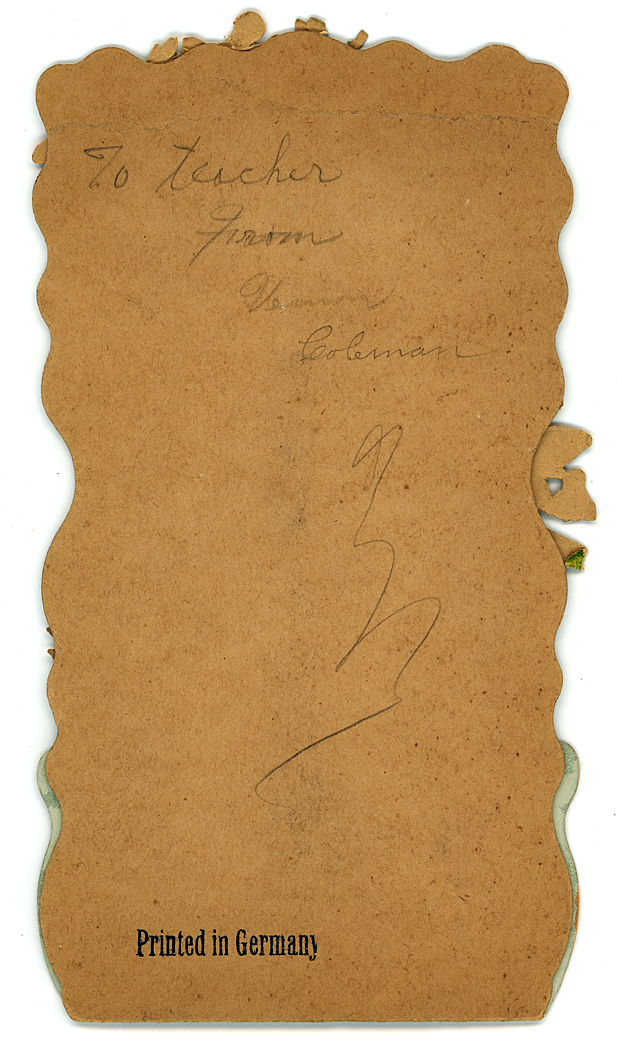 To teacher
From
Vernon
Coleman
Printed in Germany